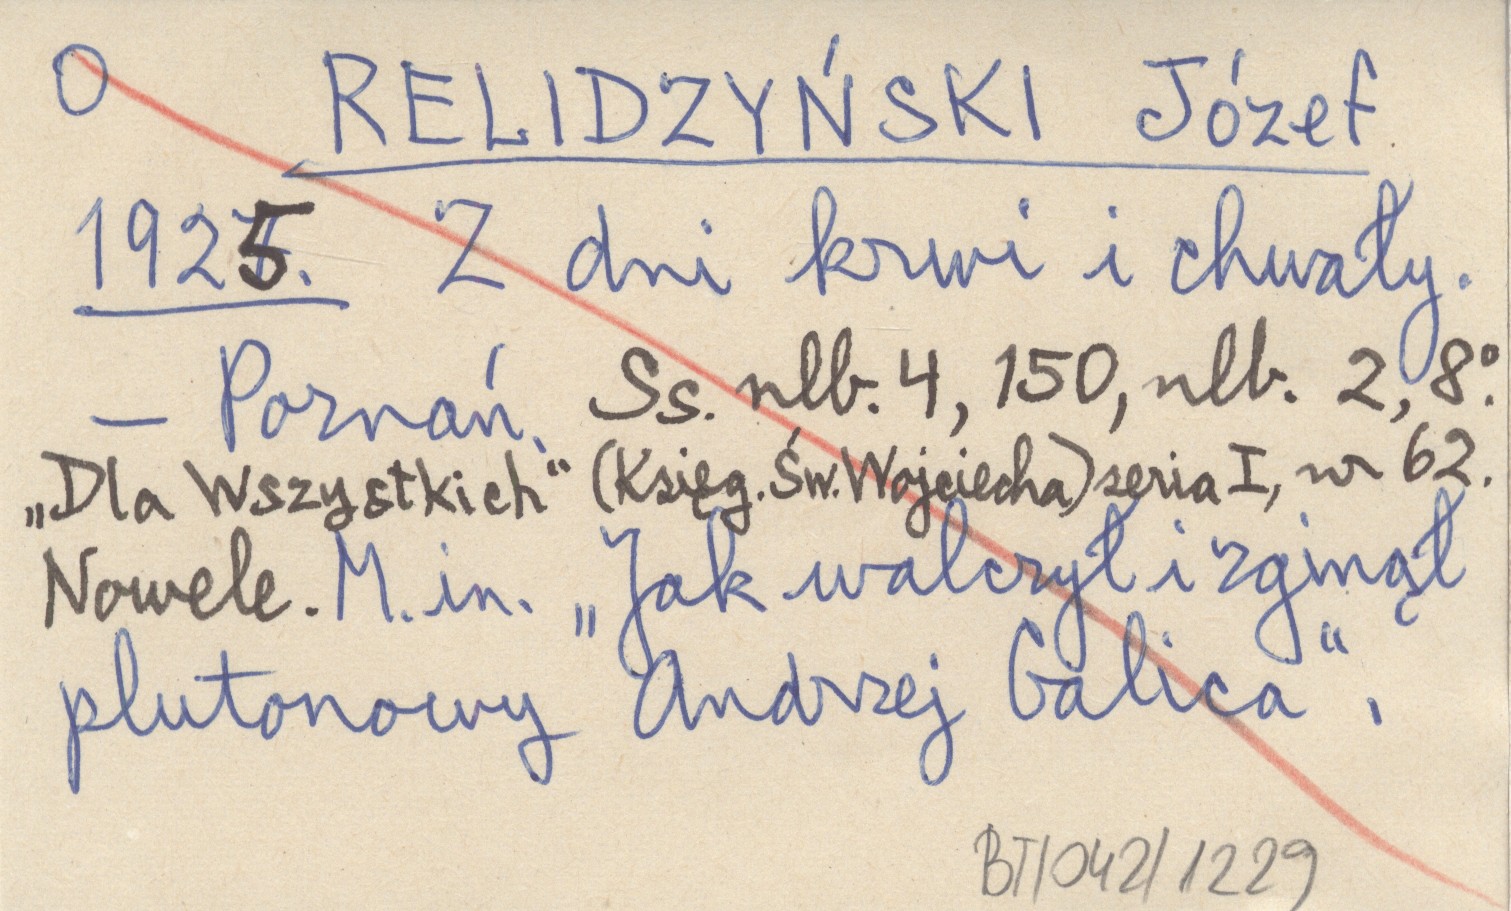 O RELIDZYŃSKI Józef
1925. Z dni krwi i chwały.
— Poznań. Ss. nlb. 4, 150, nlb. 2, 8º.
„Dla Wszystkich“ (Księg. Św. Wojciecha) seria I, nr 62.
Nowele. M. in. „Jak walczył i zginął
plutonowy Andrzej Galica“.
BT/042/1229